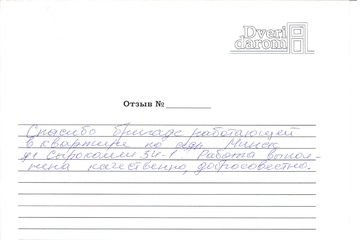 Dveri
darom
Отзыв № 
Спасибо бригаде работающей
в квартире по адр. Минск
ул Сырокомли 34-1. Работа выпол-
нена качественно, добросовестно.